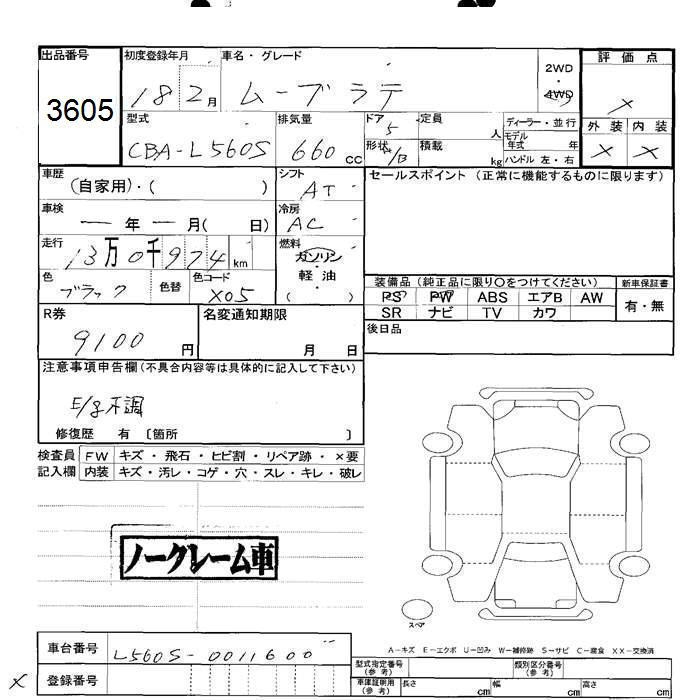 出品番号
3605
初度登録年月
18 2月
車名・グレード
ムーブラテ
2WD
・
4WD
評価点
×
外装 内装
× ×
型式
CBA-L560S
排気量
660 CC
ドア 5
形状 H/B
定員 人
積載 kg
ディーラー・並行
モデル年式 年
ハンドル 左・右
車歴
(自家用)・( )
シフト
AT
セールスポイント (正常に機能するものに限ります)
車検
— 年 — 月( 日)
冷房
AC
走行
13万0千974 km
燃料
ガソリン
・
軽油
・
( )
色
ブラック
色替
色コード
X05
装備品 (純正品に限り〇をつけてください)
PS PW ABS エアB AW
SR ナビ TV カワ
新車保証書
有・無
R券
9100 円
名変通知期限
月 日
後日品
注意事項申告欄(不具合内容等は具体的に記入して下さい)
E/g不調
修復歴 有 〔箇所 〕
検査員記入欄
FW キズ・飛石・ヒビ割・リペア跡・×要
内装 キズ・汚レ・コゲ・穴・スレ・キレ・破レ
ノークレーム車
スペア
A−キズ E−エクボ U−凹み W−補修跡 S−サビ C−腐食 XX−交換済
車台番号
L560S-0011600
× 登録番号
型式指定番号(参考)
類別区分番号(参考)
車庫証明用(参考) 長さ cm 幅 cm 高さ cm